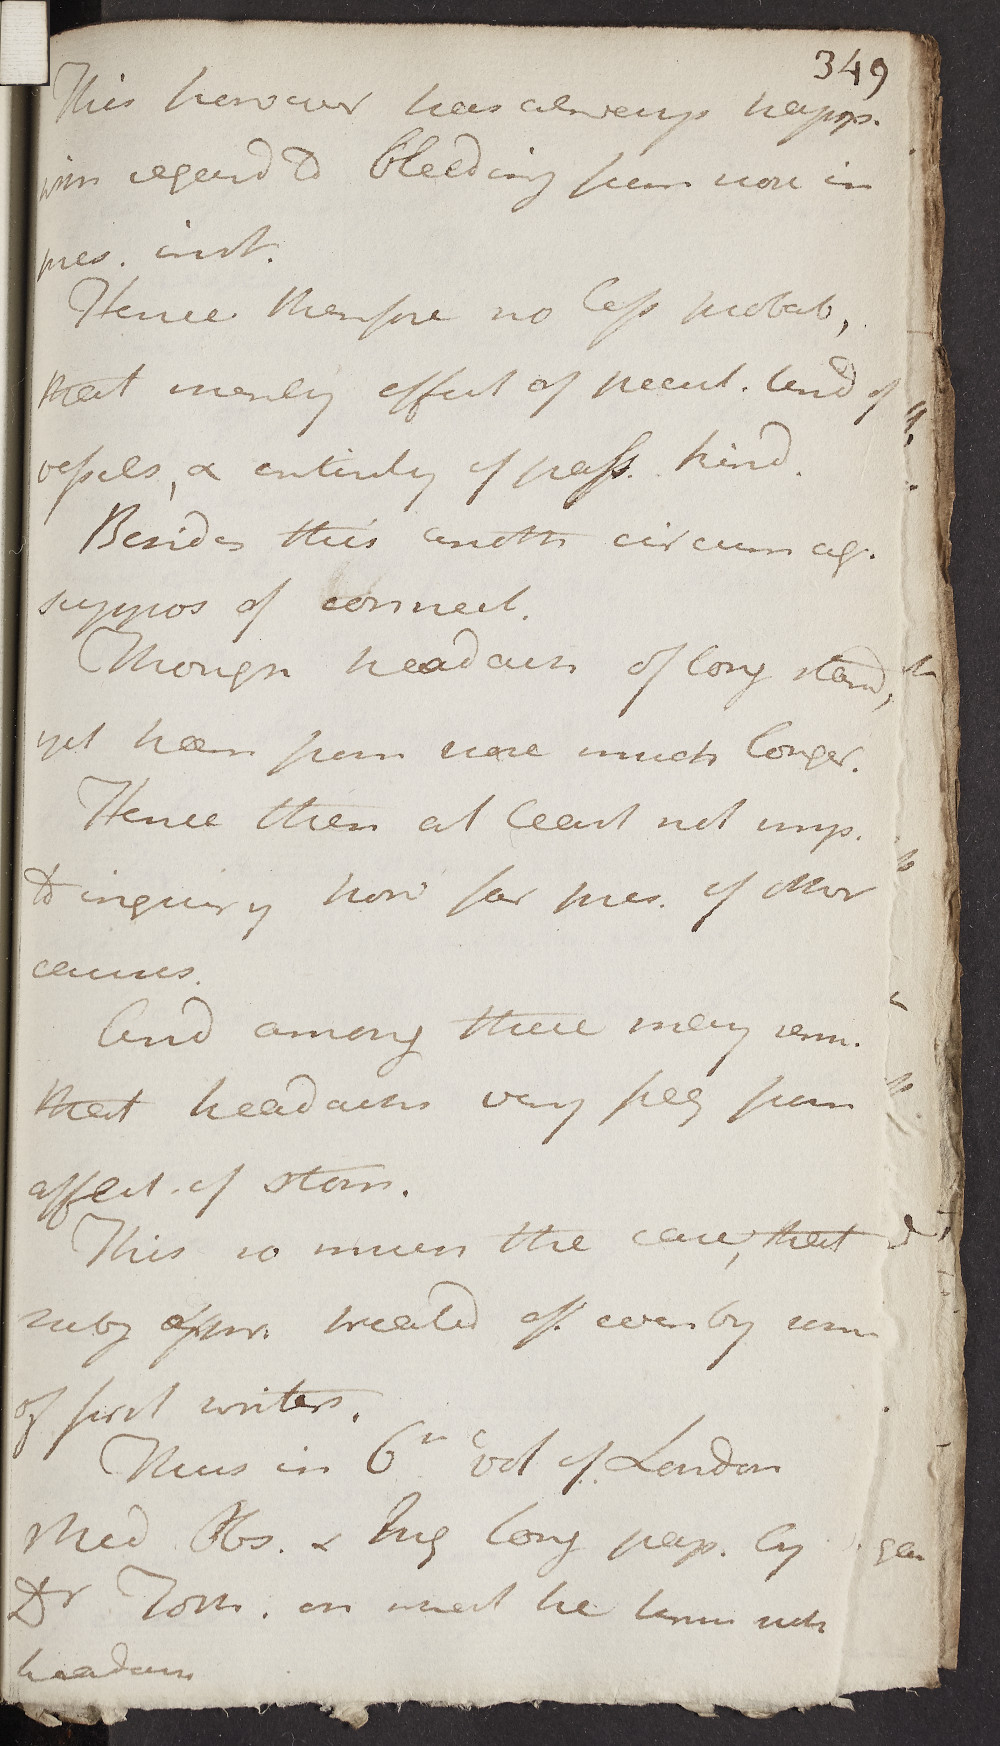 349
This however has always happ.
with regard to bleeding from nose in
pres. inst.
Hence therefore no less probab,
that merely effect of pecul. cond of
vessels, & entirely of pass. kind.
Besides this anoth circum ag.
suppos of connect.
Though headach of long stand,
yet hæm from nose much longer.
Hence then at least not imp.
to inquiry how far pres. of other
causes.
And among these may rem.
that headachs very freq from
affect. of stom.
This so much the case, that
subj treated of. even by som
of first writers.
Thus in 6th vol of London
Med Obs. & Inq long pap. by
Dr Foth. on what he terms
headach